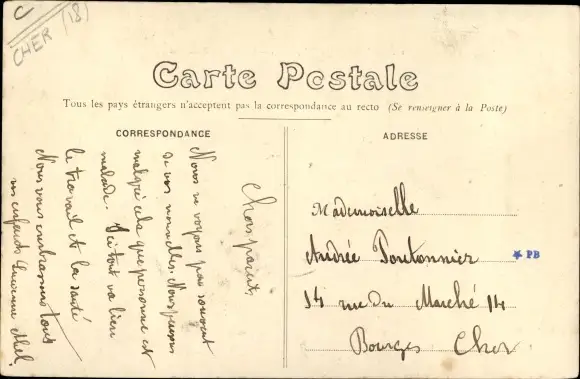 C
CHER (18)
Carte Postale
Tous les pays étrangers n'acceptent pas la correspondance au recto (Se renseigner à la Poste)
CORRESPONDANCE
Chers parents
Nous ne voyons pas souvent
de vos nouvelles. Nous pensons
malgré cela que personne est
malade. Ici tout va bien
le travail et la santé
Nous vous embrassons tous
vos enfants
ADRESSE
Mademoiselle
Andrée Poutonnier
14 rue du Marché 14
Bourges Cher
PB